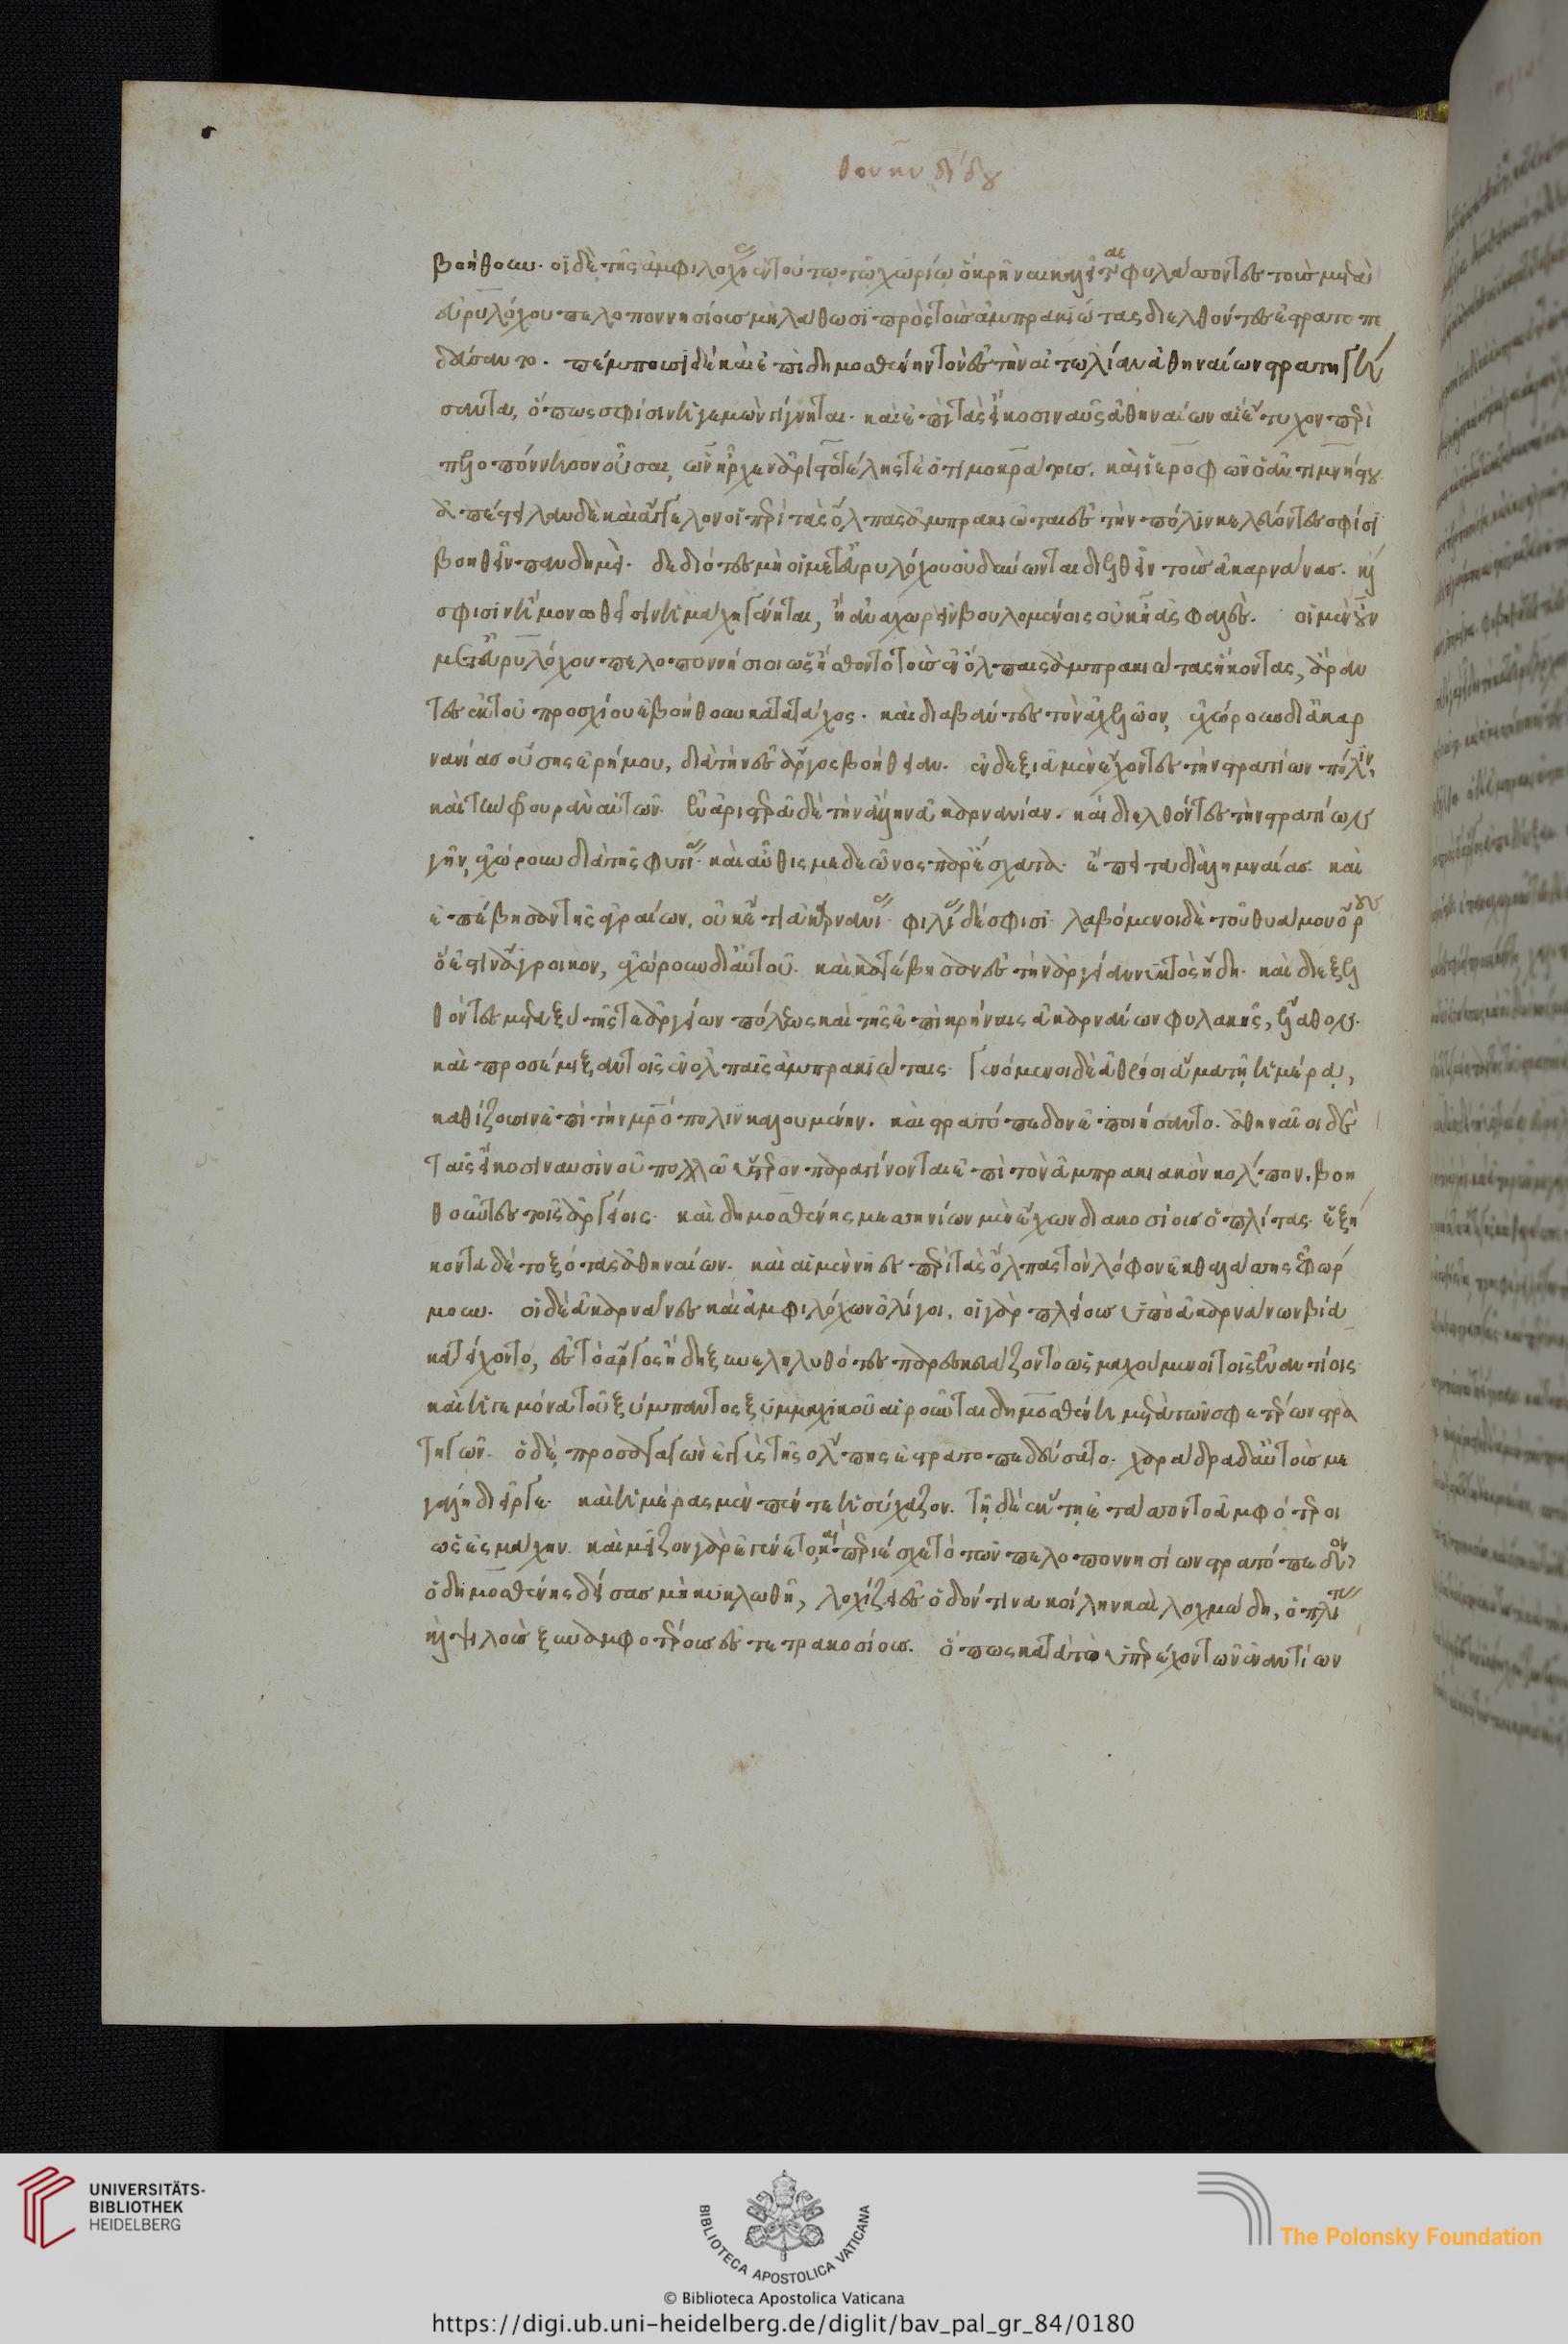 θουκυδίδου
βοήθουν. οἱ δὲ τῆς ἀμφιλοχίας ἐν τούτῳ τῷ χωρίῳ ὃ κρῆναι καλεῖται φυλάσσοντες τοὺς μετὰ
εὐρυλόχου πελοποννησίους μὴ λάθωσι πρὸς τοὺς ἀμπρακιώτας διελθόντες ἐστρατοπε
δεύσαντο. πέμπουσι δὲ καὶ ἐπὶ δημοσθένην τὸν ἐς τὴν αἰτωλίαν ἀθηναίων στρατηγή
σαντα, ὅπως σφίσιν ἡγεμὼν γίγνηται. καὶ ἐπὶ τὰς εἴκοσι ναῦς ἀθηναίων αἳ ἔτυχον περὶ
πελοπόννησον οὖσαι, ὧν ἦρχεν ἀριστοτέλης τε ὁ τιμοκράτους. καὶ ἱεροφῶν ὁ ἀντιμνήστου
ἀπέστειλαν δὲ καὶ ἄγγελον οἱ περὶ τὰς ὄλπας ἀμπρακιῶται ἐς τὴν πόλιν κελεύοντες σφίσι
βοηθεῖν πανδημεί. δεδιότες μὴ οἱ μετ' εὐρυλόχου οὐ δύνωνται διελθεῖν τοὺς ἀκαρνάνας. καὶ
σφίσιν ἢ μονωθεῖσιν ἡ μάχη γένηται, ἢ ἀναχωρεῖν βουλομένοις οὐκ ᾖ ἀσφαλές. οἱ μὲν οὖν
μετ' εὐρυλόχου πελοποννήσιοι ὡς ᾔσθοντο τοὺς ἐν ὄλπαις ἀμπρακιώτας ἥκοντας, ἄραν
τες ἐκ τοῦ προσχίου ἐβοήθουν κατὰ τάχος. καὶ διαβάντες τὸν ἀχελῷον, ἐχώρουν δι' ἀκαρ
νανίας οὔσης ἐρήμου, διὰ τὴν ἐς ἄργος βοήθειαν. ἐν δεξιᾷ μὲν ἔχοντες τὴν στρατίων πόλιν,
καὶ τὴν φρουρὰν αὐτῶν. ἐν ἀριστερᾷ δὲ τὴν ἄλλην ἀκαρνανίαν. καὶ διελθόντες τὴν στρατίων
γῆν, ἐχώρουν διὰ τῆς φυτίας. καὶ αὖθις μεδεῶνος παρ' ἔσχατα. ἔπειτα διὰ λιμναίας. καὶ
ἐπέβησαν τῆς ἀγραίων, οὐκέτι ἀκαρνανίας. φιλίας δὲ σφίσι. λαβόμενοι δὲ τοῦ θυάμου ὄρους
ὅ ἐστιν ἄγροικον, ἐχώρουν δι' αὐτοῦ. καὶ κατέβησαν ἐς τὴν ἀργείαν νυκτὸς ἤδη. καὶ διεξελ
θόντες μεταξὺ τῆς τε ἀργείων πόλεως καὶ τῆς ἐπὶ κρήναις ἀκαρνάνων φυλακῆς, ἔλαθον.
καὶ προσέμιξαν τοῖς ἐν ὄλπαις ἀμπρακιώταις. γενόμενοι δὲ ἀθρόοι ἅμα τῇ ἡμέρᾳ,
καθίζουσιν ἐπὶ τὴν μητρόπολιν καλουμένην. καὶ στρατόπεδον ἐποιήσαντο. ἀθηναῖοι δὲ
ταῖς εἴκοσι ναυσὶν οὐ πολλῷ ὕστερον παραγίνονται ἐπὶ τὸν ἀμπρακικὸν κόλπον. βοη
θοῦντες τοῖς ἀργείοις. καὶ δημοσθένης μεσσηνίων μὲν ἔχων διακοσίους ὁπλίτας. ἑξή
κοντα δὲ τοξότας ἀθηναίων. καὶ αἱ μὲν νῆες περὶ τὰς ὄλπας τὸν λόφον ἐκ θαλάσσης ἐφώρ
μουν. οἱ δὲ ἀκαρνᾶνες καὶ ἀμφιλόχων ὀλίγοι. οἱ γὰρ πλείους ὑπὸ ἀκαρνάνων βίᾳ
κατείχοντο, ἐς τὸ ἄργος ἤδη ξυνεληλυθότες παρεσκευάζοντο ὡς μαχούμενοι τοῖς ἐναντίοις.
καὶ ἡγεμόνα τοῦ ξύμπαντος ξυμμαχικοῦ αἱροῦνται δημοσθένη μετὰ τῶν σφετέρων στρα
τηγῶν. ὁ δὲ, προσαγαγὼν ἐγγὺς τῆς ὄλπης ἐστρατοπεδεύσατο. χαράδρα δ' αὐτοὺς με
γάλη διεῖργε. καὶ ἡμέρας μὲν πέντε ἡσύχαζον. τῇ δὲ ἕκτῃ ἐτάσσοντο ἀμφότεροι
ὡς ἐς μάχην. καὶ μεῖζον γὰρ ἐγένετο, καὶ περιέσχε τὸ τῶν πελοποννησίων στρατόπεδον,
ὁ δημοσθένης δείσας μὴ κυκλωθῇ, λοχίζει ἐς ὁδόν τινα κοίλην καὶ λοχμώδη, ὁπλίτας
καὶ ψιλοὺς ξυναμφοτέρους ἐς τετρακοσίους. ὅπως κατὰ τὸ ὑπερέχον τῶν ἐναντίων
UNIVERSITÄTS-
BIBLIOTHEK
HEIDELBERG
BIBLIOTECA APOSTOLICA VATICANA
© Biblioteca Apostolica Vaticana
The Polonsky Foundation
https://digi.ub.uni-heidelberg.de/diglit/bav_pal_gr_84/0180